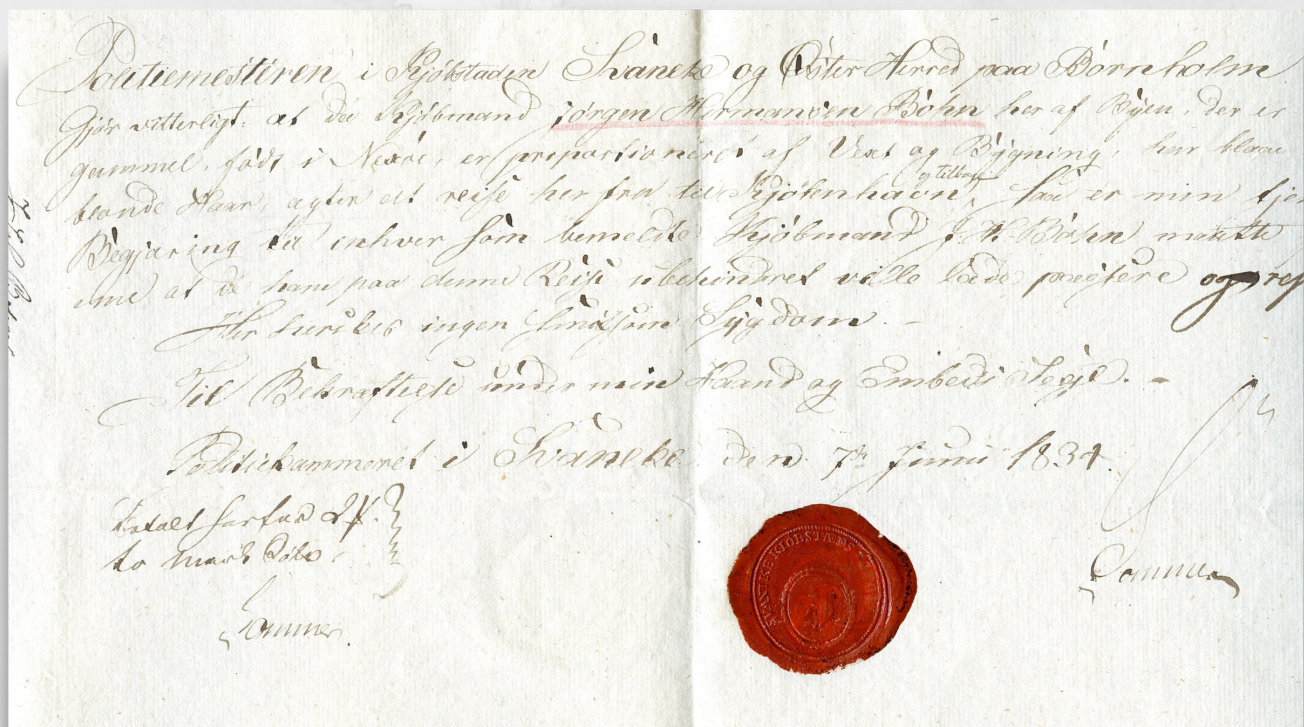 Politiemesteren i Kjöbstaden Svaneke og Öster Herred paa Bornholm
Gjör vitterligt: at da Kjöbmand Jörgen Hermansen Bohn her af Byen, der er
gammel, född i Nexöe, er proportioneret af Vext og Bygning, har blaae
blonde Haar, agter at reise herfra til Kjöbenhavn og tilbage, saa er min tje
Begjæring til enhver som bemeldte Kjöbmand J. H. Bohn maatte
me at de ham paa denne Reise ubehindret ville lade passere og rep
Her hersker ingen smitsom Sygdom. -
Til Bekræftelse under min Haand og Embeds Segl. -
Politiekammeret i Svaneke den 7de Junii 1834.
Betalt herfor 2 #.
to Mark Sölv
Sommer.
Sommer
SVANEKE KIÖBSTÆDS